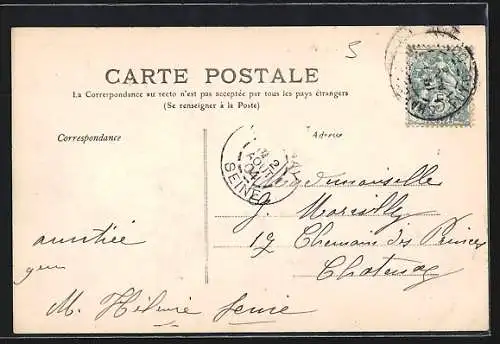 5
CARTE POSTALE
La Correspondance au recto n'est pas acceptée par tous les pays étrangers
(Se renseigner à la Poste)
Correspondance
Adresse
2
AOUT
04
SEINE
5
Mademoiselle
J.
17 Chemin des Princes
Chatenay
amitié
M. Hélène